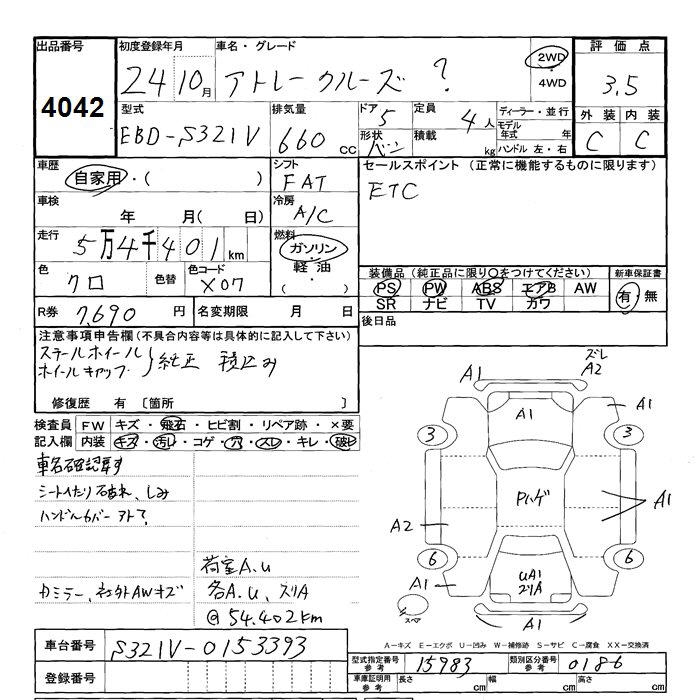 出品番号 初度登録年月 車名・グレード 評価点
4042 24 10月 アトレークルーズ ? 2WD ・ 4WD 3.5
型式 排気量 ドア 5 定員 4人 ディーラー・並行 外装 内装
EBD-S321V 660 cc 形状 バン 積載 kg モデル年式 年 ハンドル 左・右 C C
車歴 シフト セールスポイント (正常に機能するものに限ります)
自家用・( ) FAT ETC
車検 年 月( 日) 冷房 A/C
走行 5万4千401km 燃料 ガソリン・軽油・( )
色 クロ 色替 色コード X07 装備品 (純正品に限り○をつけてください) 新車保証書
PS PW ABS エアB AW 有・無
SR ナビ TV カワ
R券 7,690 円 名変期限 月 日 後日品
注意事項申告欄 (不具合内容等は具体的に記入して下さい)
スチールホイール
ホイールキャップ } 純正 積込み
修復歴 有 〔箇所 〕
検査員 FW キズ・飛石・ヒビ割・リペア跡・×要
記入欄 内装 キズ・汚れ・コゲ・穴・スレ・キレ・破レ
車名確認要す
シートへたり 破れ、しみ
ハンドルカバーアト?
荷室A.U
カミラー、社外AWキズ 各A.U、スリA
@54.402km
ズレ
A1 A2
A1 A1
3 3
Pハゲ A1
A2
6 6
UA1
スリA
A1 A1
スペア
A-キズ E-エクボ U-凹み W-補修跡 S-サビ C-腐食 XX-交換済
車台番号 S321V-0153393
型式指定番号 参考 15983 類別区分番号 参考 0186
登録番号 車庫証明用 参考 長さ cm 幅 cm 高さ cm